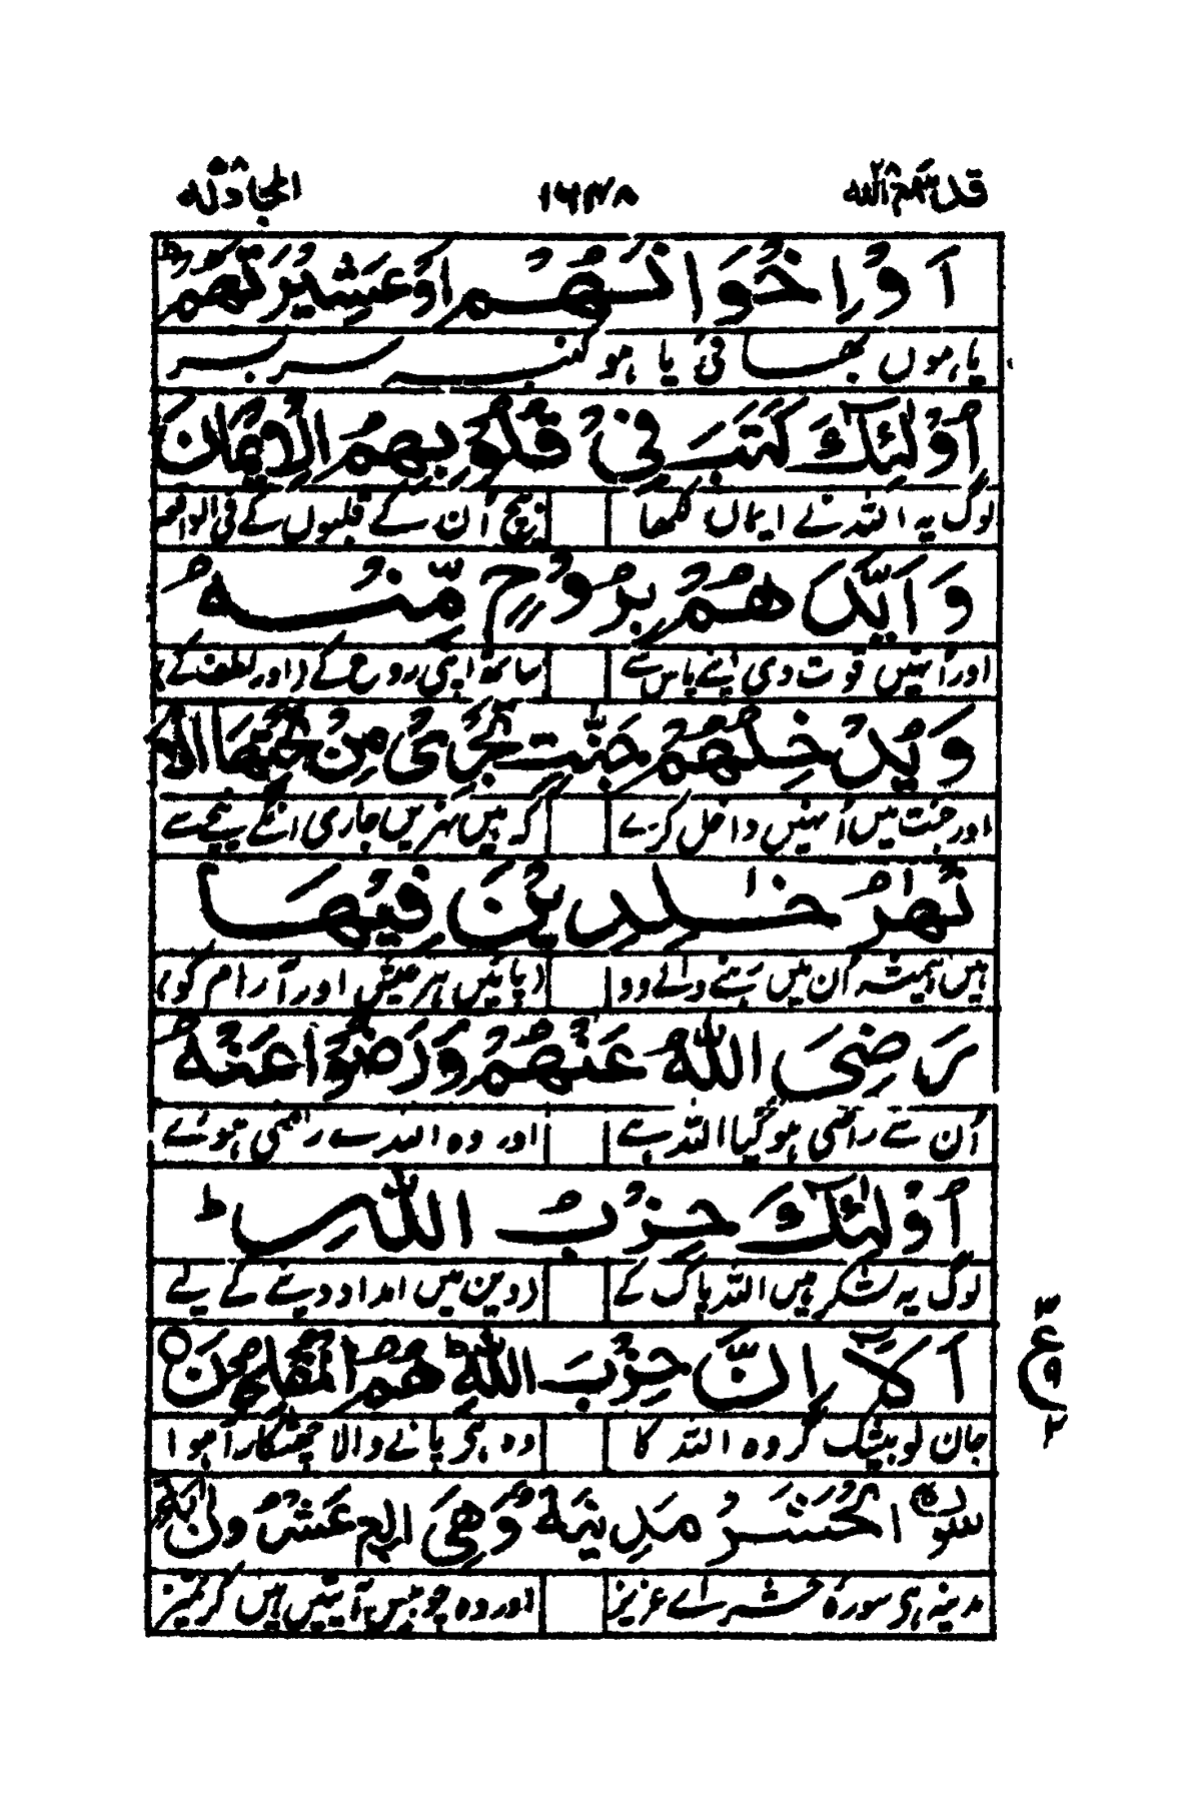 قد سمع الله ٢٨ ١٦٣٨ المجادلة ٥٨
اَوْ اِخْوَانَهُمْ اَوْ عَشِيْرَتَهُمْ ط
یا ہوں بھائی یا ہو کنبہ سر بسر
اُولٰٓئِكَ كَتَبَ فِيْ قُلُوْبِهِمُ الْاِيْمَانَ
لوگ یہ اللہ نے ایماں لکھا بیچ اُن کے قلبوں کے فی الواقعہ
وَاَيَّدَهُمْ بِرُوْحٍ مِّنْهُ
اور اُنہیں قوت دی اپنے پاس سے ساتھ اپنی روح کے (اور لطف کے)
وَيُدْخِلُهُمْ جَنّٰتٍ تَجْرِيْ مِنْ تَحْتِهَا الْاَ
اور جنت میں اُنہیں داخل کرے کہ ہیں نہریں جاری انکے نیچے سے
نْهٰرُ خٰلِدِيْنَ فِيْهَا
ہیں ہمیشہ اُن میں رہنے والے وو (پائیں ہر عیش اور آرام کو)
رَضِيَ اللّٰهُ عَنْهُمْ وَرَضُوْا عَنْهُ
اُن سے راضی ہو گیا اللہ ہے اور وہ اللہ سے راضی ہوئے
اُولٰٓئِكَ حِزْبُ اللّٰهِ ط
لوگ یہ لشکر ہیں اللہ پاک کے (دین میں امداد دینے کے لیے
اَلَآ اِنَّ حِزْبَ اللّٰهِ هُمُ الْمُفْلِحُوْنَ ○
جان لو بیشک گروہ اللہ کا وہ ہی پانے والا چھٹکارا ہوا
ع ٣ ٩ ٢
سورة الحشر مدنية وهي اربع عشرون اية
مدینہ ہی سورہ حشر اے عزیز اور وہ چوبیس آیتیں ہیں کر تمیز